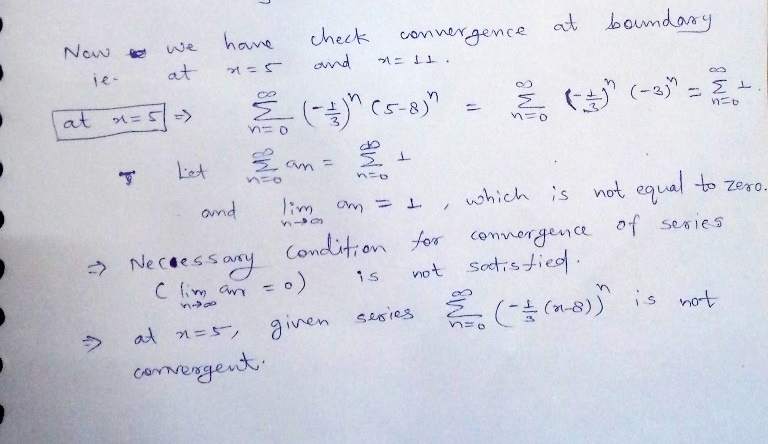 Now we have check convergence at boundary
ie. at x=5 and x=11.
at x=5 ⇒ ∑_{n=0}^{∞} (-1/3)^n (5-8)^n = ∑_{n=0}^{∞} (-1/3)^n (-3)^n = ∑_{n=0}^{∞} 1.
Let ∑_{n=0}^{∞} an = ∑_{n=0}^{∞} 1
and lim_{n→∞} an = 1, which is not equal to zero.
⇒ Necessary condition for convergence of series
(lim_{n→∞} an = 0) is not satisfied.
⇒ at x=5, given series ∑_{n=0}^{∞} (-1/3 (x-8))^n is not
convergent.